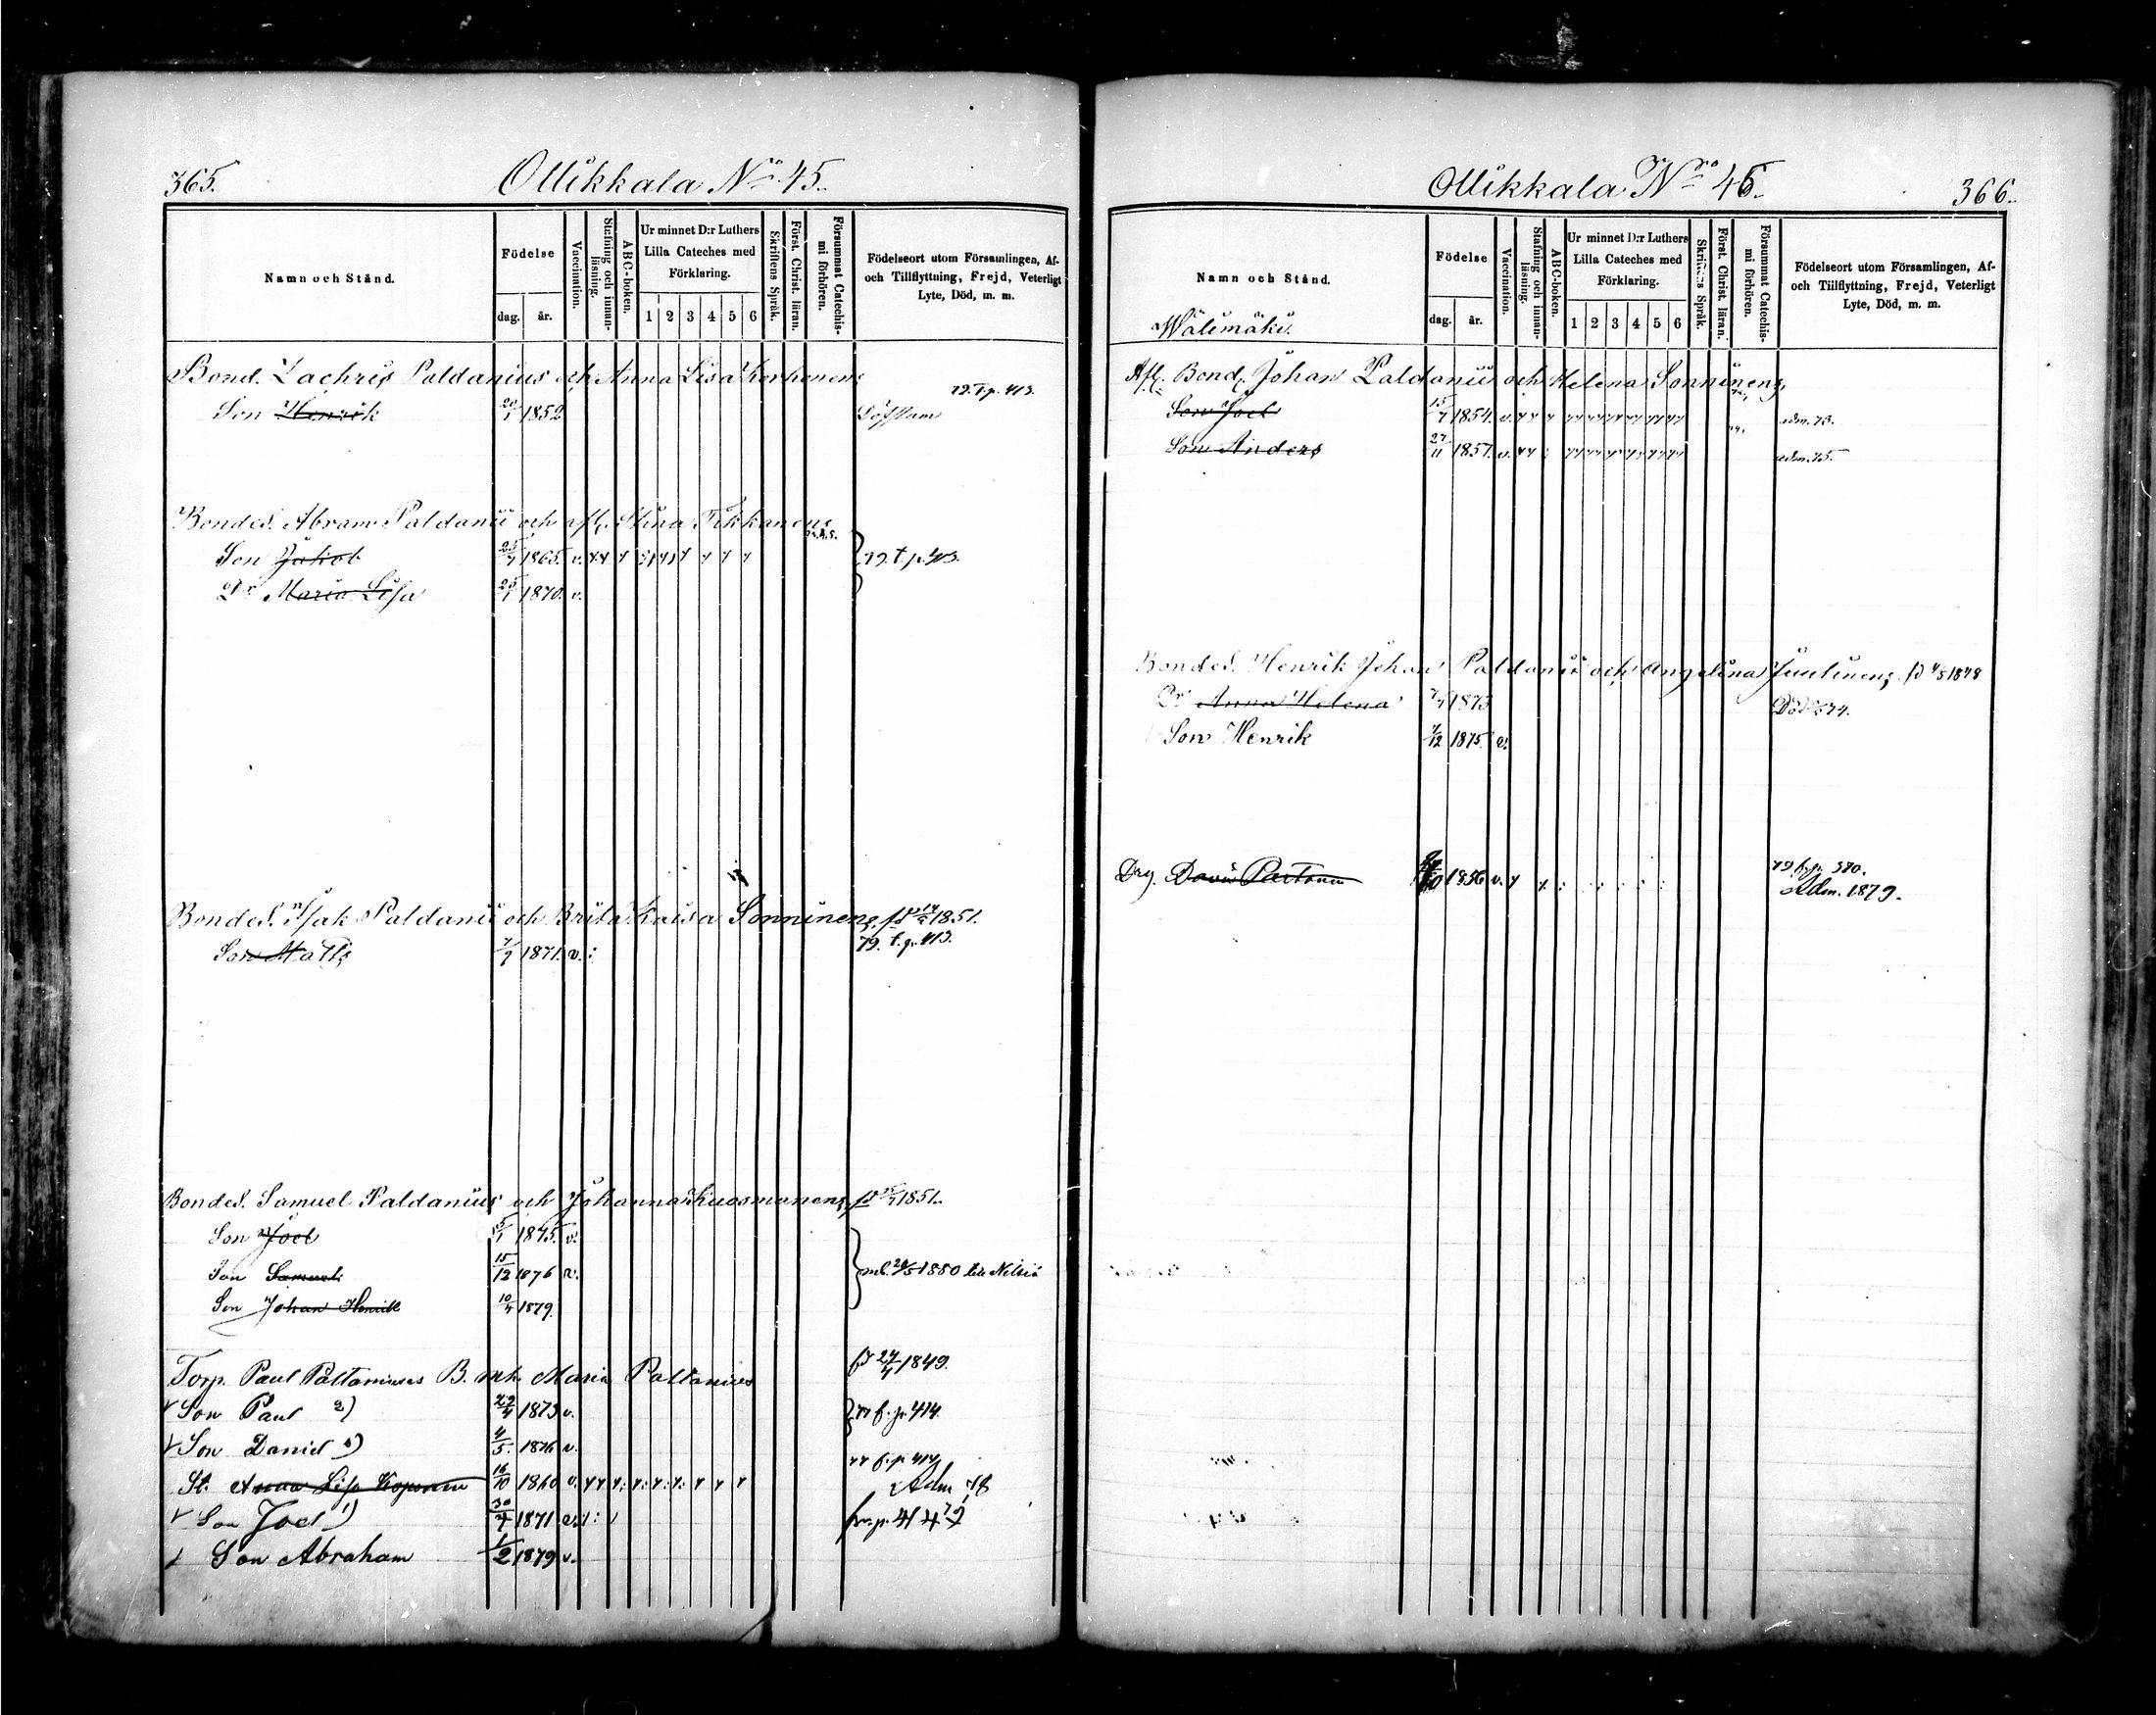 365.
Ollikkala No 45.
Namn och Stånd.
Födelse
dag. år.
Vaccination.
Stafning och innan-läsning.
ABC-boken.
Ur minnet D:r Luthers Lilla Cateches med Förklaring.
1 2 3 4 5 6
Skriftens Språk.
Först. Christ. läran.
Försummat Catechis-mi förhören.
Födelseort utom Församlingen, Af- och Tillflyttning, Frejd, Veterligt Lyte, Död, m. m.
Bond. Zachris Paldanius och Anna Lisa Korhonens
72. f. p. 413.
Son Henrik 20/1 1852
Bondes. Abram Paldanii och afl. Stina Tikkanens
Son Jakob 1865. v.
79. f. p. 413.
Dr Maria Lisa 25/1 1870. v.
Bondes. Isak Paldanii och Brita Kaisa Sonninens fd 1851.
Son Matts 7/9 1871. v.
79. f. p. 413.
Bondes. Samuel Paldanius och Johanna Kuosmanens fd 1851.
Son Joel 5/1 1875. v.
Son Samuel 15/12 1876 v.
1880 till Nilsiä
Son Johan Henrik 10/4 1879.
Torp. Paul Paltaniuses B. och Maria Paltanius
fd 24/4 1849.
Son Paul 2) 22/4 1873 v.
77 f. p. 414.
Son Daniel 3) 4/5. 1876 v.
77 f. p. 414
St. Anna Lisa Koponen 16/10 1860 v.
Adm 78
Son Joel 1) 30/7 1871 v.
Son Abraham 1/2 1879 v.
Ollikkala Nro 45.
366.
Namn och Stånd.
Wälimäki.
Födelse
dag. år.
Vaccination.
Stafning och innan-läsning.
ABC-boken.
Ur minnet D:r Luthers Lilla Cateches med Förklaring.
1 2 3 4 5 6
Skriftens Språk.
Först. Christ. läran.
Försummat Catechis-mi förhören.
Födelseort utom Församlingen, Af- och Tillflyttning, Frejd, Veterligt Lyte, Död, m. m.
Afl. Bond. Johan Paldanii och Helena Sonninens,
Son Joel 15/7 1854. v.
adm. 73.
Son Anders 27/11 1857. v.
adm. 75.
Bondes. Henrik Johan Paldanii och Angelina Juutinens fd 4/5 1848
Dr Anna Helena 7/7 1873
Son Henrik 7/12 1875. v.
Drg. David Partanen 1856 v.
79 f. p. 380.
Adm. 1879.